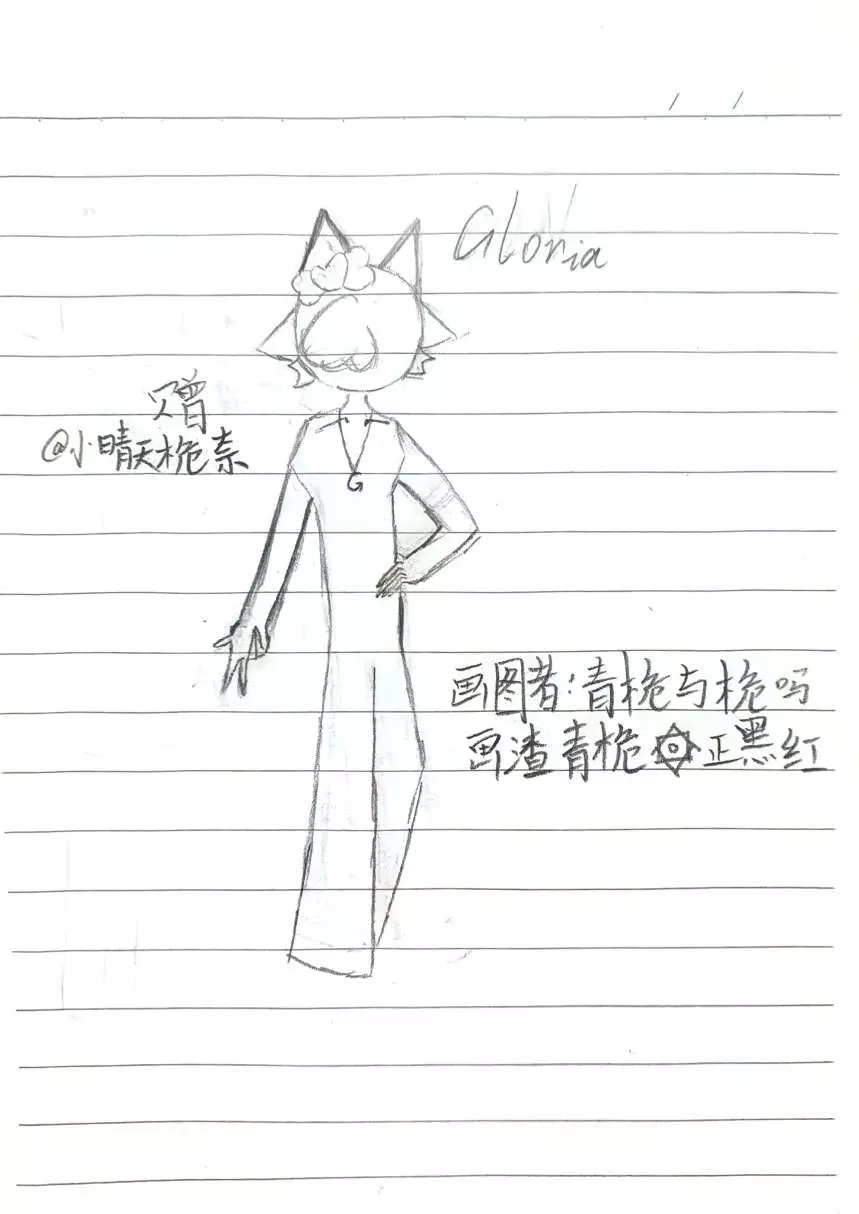 Gloria
赠
@小晴天桅柰
G
画图者:青桅与桅吗
画渣青桅 正黑红